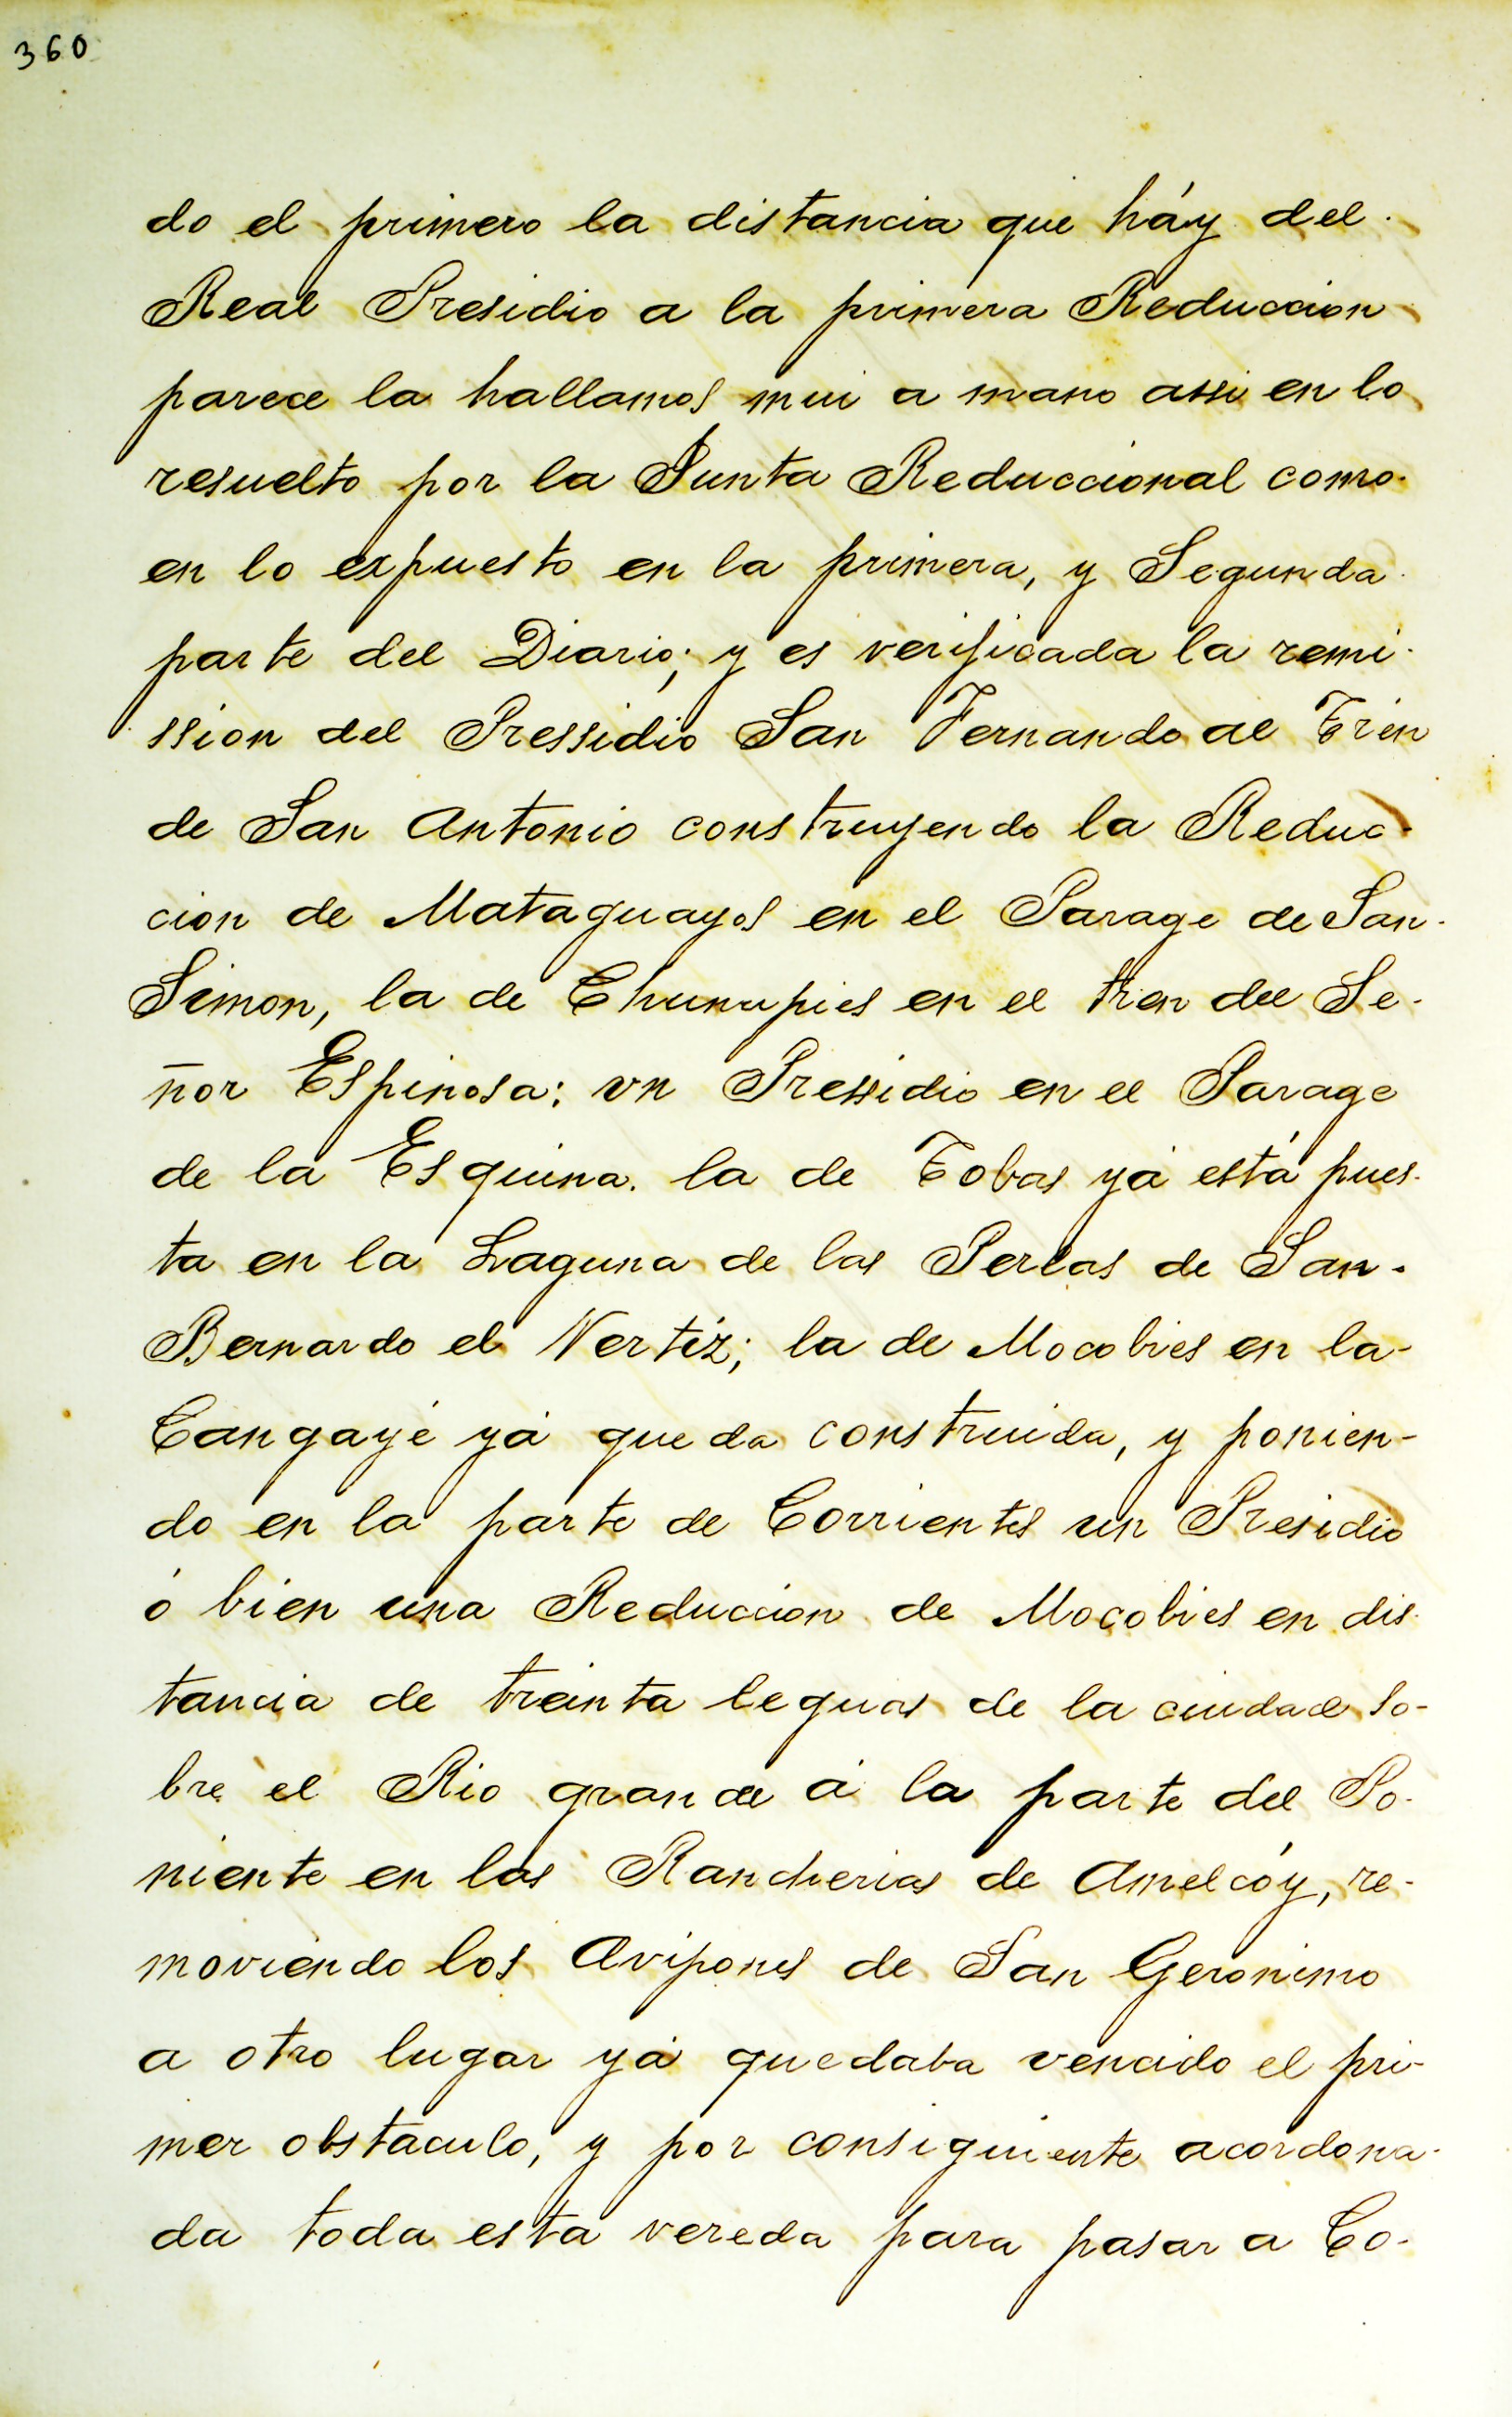 360
do el primero la distancia que háy del
Real Presidio a la primera Reduccion
parece la hallamos mui a mano assi en lo
resuelto por la Junta Reduccional como
en lo expuesto en la primera, y Segunda
parte del Diario; y es verificada la remi-
ssion del Pressidio San Fernando al Trén
de San Antonio construyendo la Reduc-
cion de Mataguayos en el Parage de San
Simon, la de Chunupies en el tren del Se-
ñor Espinosa: vn Pressidio en el Parage
de la Esquina. la de Tobas yá está pues-
ta en la Laguna de las Perlas de San
Bernardo el Vertiz; la de Mocobies en la
Cangayé yá queda construida, y ponien-
do en la parte de Corrientes un Presidio
ó bien una Reduccion de Mocobies en dis-
tancia de treinta leguas de la ciudad so-
bre el Rio grande á la parte del Po-
niente en las Rancherias de Amelcóy, re-
moviendo los Avipones de San Geronimo
a otro lugar yá quedaba vencido el pri-
mer obstaculo, y por consiguiente acordona-
da toda esta vereda para pasar a Co-